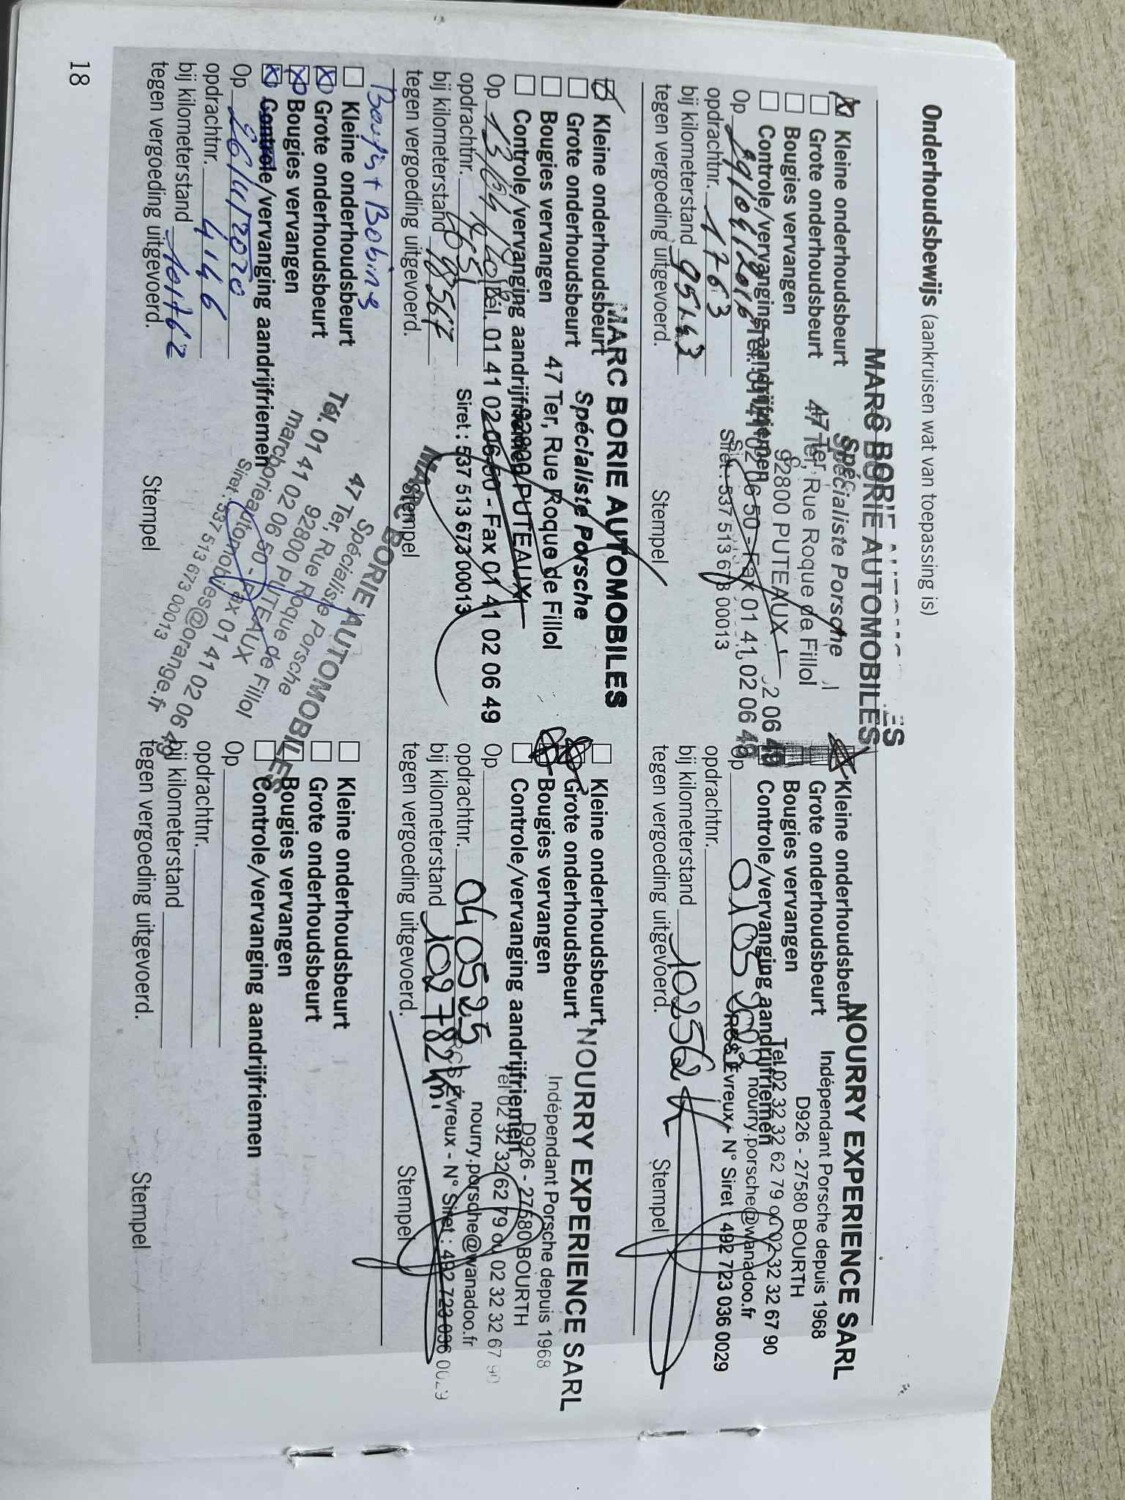 Onderhoudsbewijs (aankruisen wat van toepassing is)
MARC BORIE AUTOMOBILES
Kleine onderhoudsbeurt
Grote onderhoudsbeurt
Bougies vervangen
Controle/vervanging aandrijfriemen
Spécialiste Porsche
47 Ter, Rue Roque de Fillol
92800 PUTEAUX
02 06 50 - Fax 01 41 02 06 49
Siret : 537 513 673 00013
Op
opdrachtnr. 1763
bij kilometerstand 95143
tegen vergoeding uitgevoerd.
Stempel
NOURRY EXPERIENCE SARL
Kleine onderhoudsbeurt
Grote onderhoudsbeurt
Bougies vervangen
Controle/vervanging aandrijfriemen
Indépendant Porsche depuis 1968
D926 - 27580 BOURTH
Tel 02 32 32 62 79 ou 02 32 32 67 90
nourry.porsche@wanadoo.fr
RCS Évreux - N° Siret : 492 723 036 0029
Op
opdrachtnr.
bij kilometerstand
tegen vergoeding uitgevoerd.
Stempel
MARC BORIE AUTOMOBILES
Kleine onderhoudsbeurt
Grote onderhoudsbeurt
Bougies vervangen
Controle/vervanging aandrijfriemen
Spécialiste Porsche
47 Ter, Rue Roque de Fillol
92800 PUTEAUX
Tél. 01 41 02 06 50 - Fax 01 41 02 06 49
Siret : 537 513 673 00013
Op
opdrachtnr.
bij kilometerstand 98567
tegen vergoeding uitgevoerd.
Stempel
NOURRY EXPERIENCE SARL
Kleine onderhoudsbeurt
Grote onderhoudsbeurt
Bougies vervangen
Controle/vervanging aandrijfriemen
Indépendant Porsche depuis 1968
D926 - 27580 BOURTH
Tel 02 32 32 62 79 ou 02 32 32 67 90
nourry.porsche@wanadoo.fr
RCS Évreux - N° Siret : 492 723 036 0029
Op
opdrachtnr. 040525
bij kilometerstand 102782 km
tegen vergoeding uitgevoerd.
Stempel
Kleine onderhoudsbeurt
Grote onderhoudsbeurt
Bougies vervangen
Controle/vervanging aandrijfriemen
Op
opdrachtnr. 4146
bij kilometerstand 101762
tegen vergoeding uitgevoerd.
MARC BORIE AUTOMOBILES
Spécialiste Porsche
47 Ter, Rue Roque de Fillol
92800 PUTEAUX
Tél. 01 41 02 06 50 - Fax 01 41 02 06 49
marcborieautomobiles@orange.fr
Siret : 537 513 673 00013
Stempel
Kleine onderhoudsbeurt
Grote onderhoudsbeurt
Bougies vervangen
Controle/vervanging aandrijfriemen
Op
opdrachtnr.
bij kilometerstand
tegen vergoeding uitgevoerd.
Stempel
18